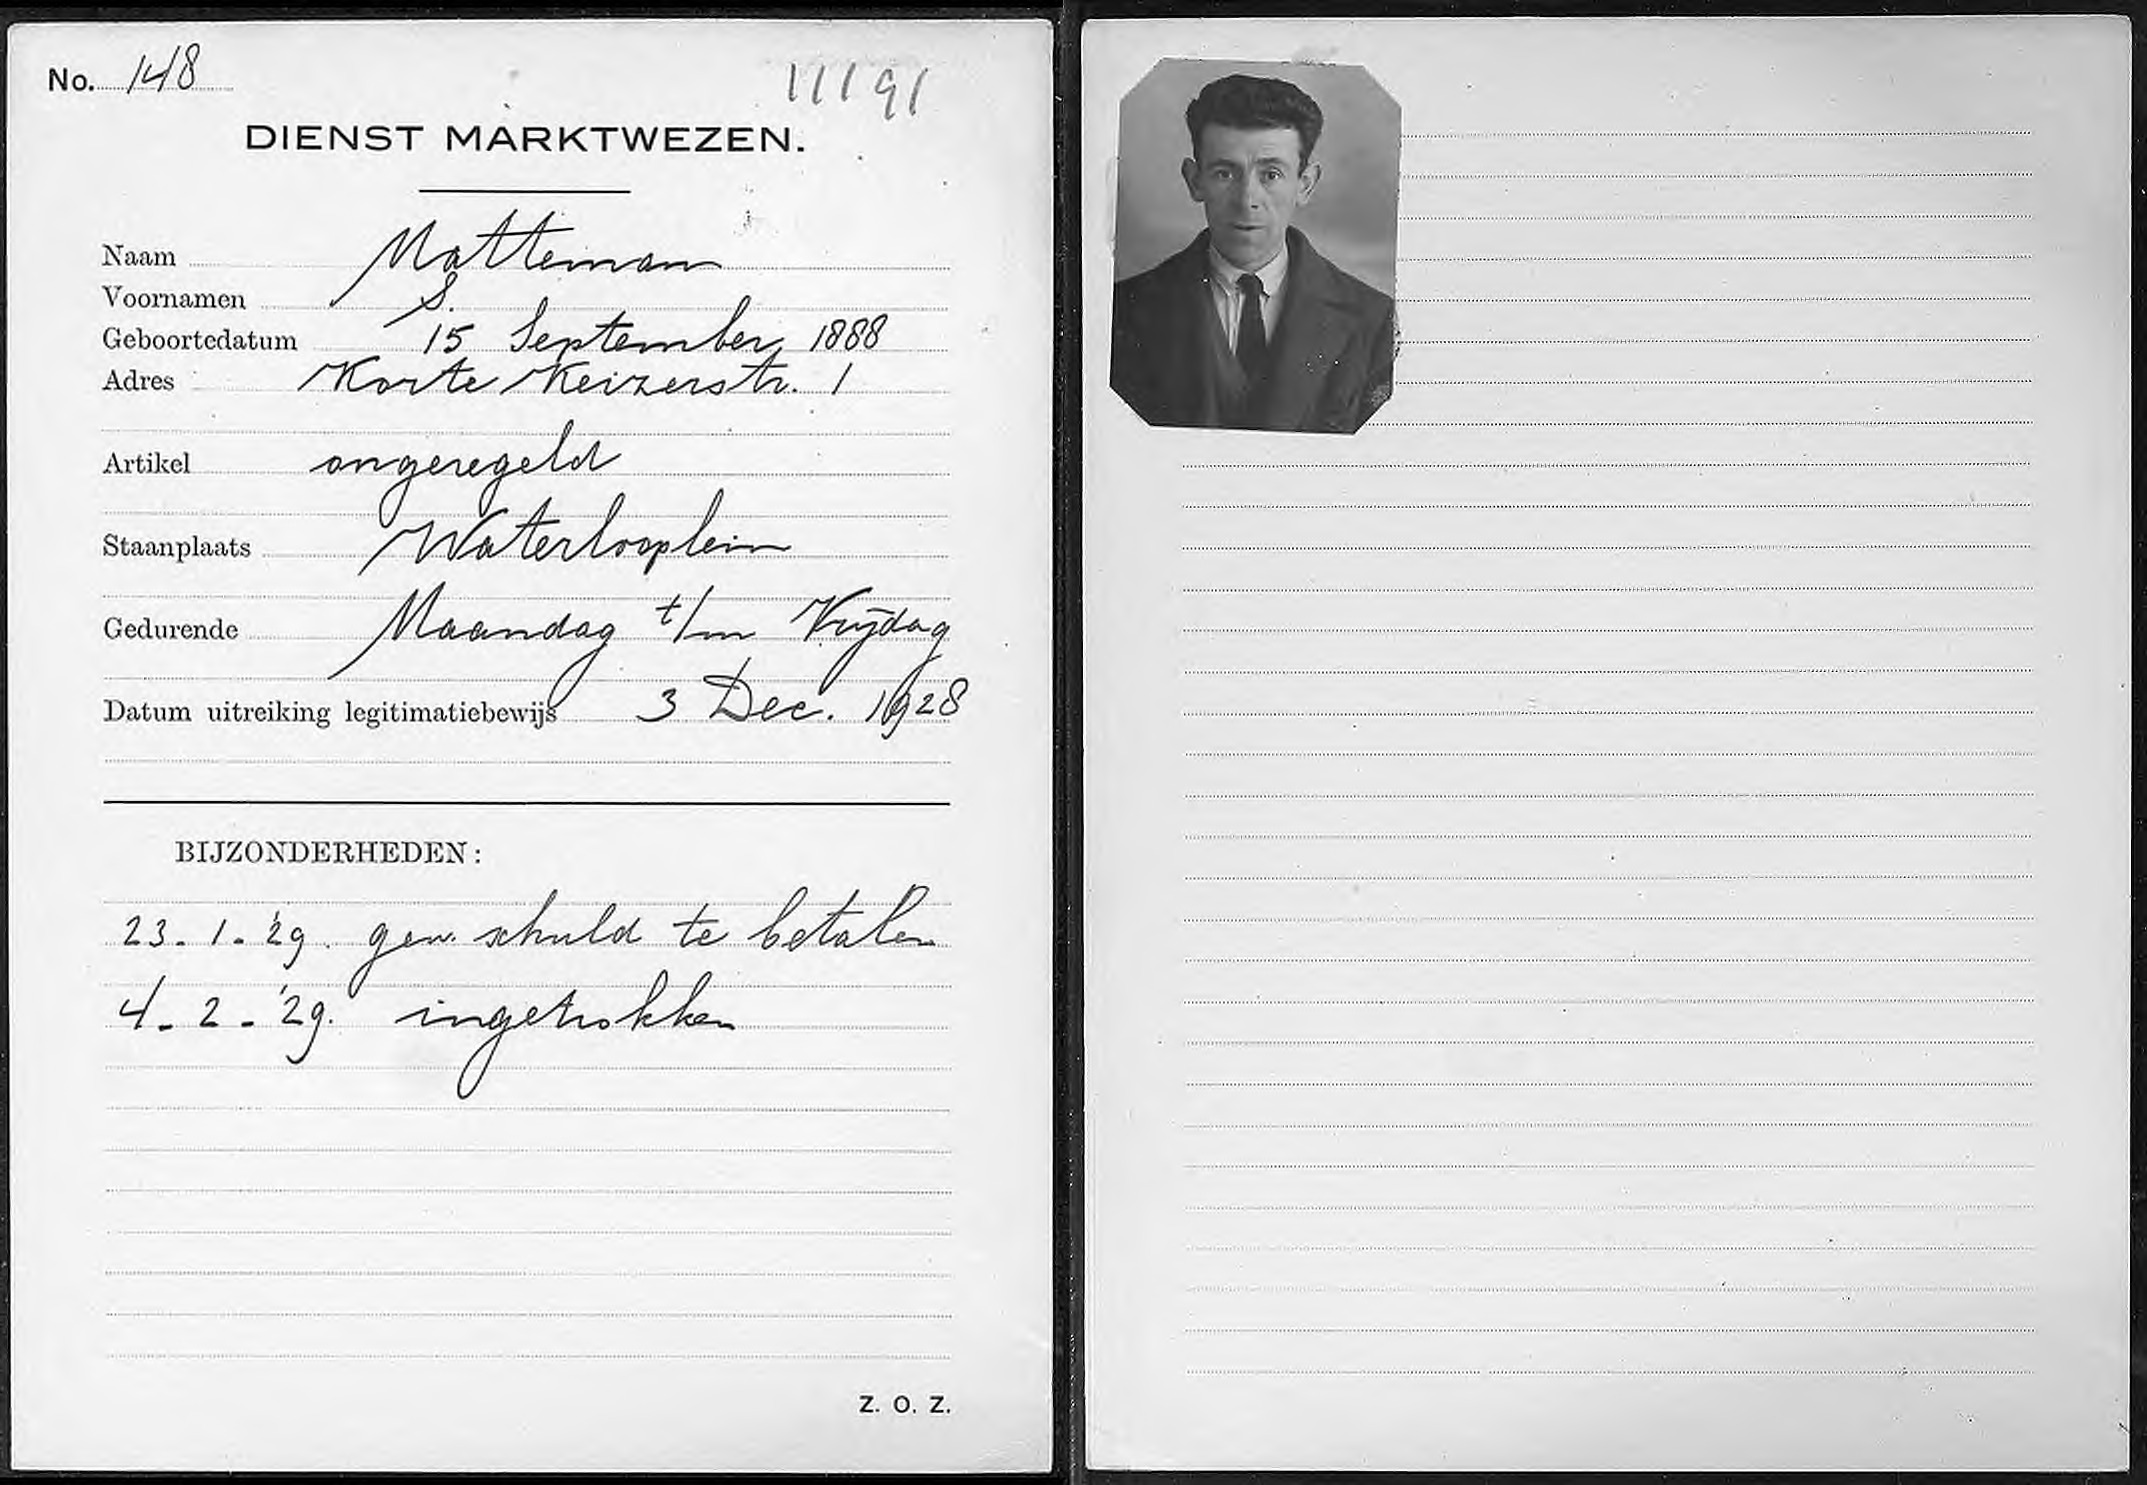 No. 148
11191
DIENST MARKTWEZEN.
Naam Matteman
Voornamen S.
Geboortedatum 15 September 1888
Adres Korte Keizerstr. 1
Artikel ongeregeld
Staanplaats Waterlooplein
Gedurende Maandag t/m Vrijdag
Datum uitreiking legitimatiebewijs 3 Dec. 1928
BIJZONDERHEDEN:
23-1-'29. gew. schuld te betalen
4-2-'29. ingetrokken
Z. O. Z.